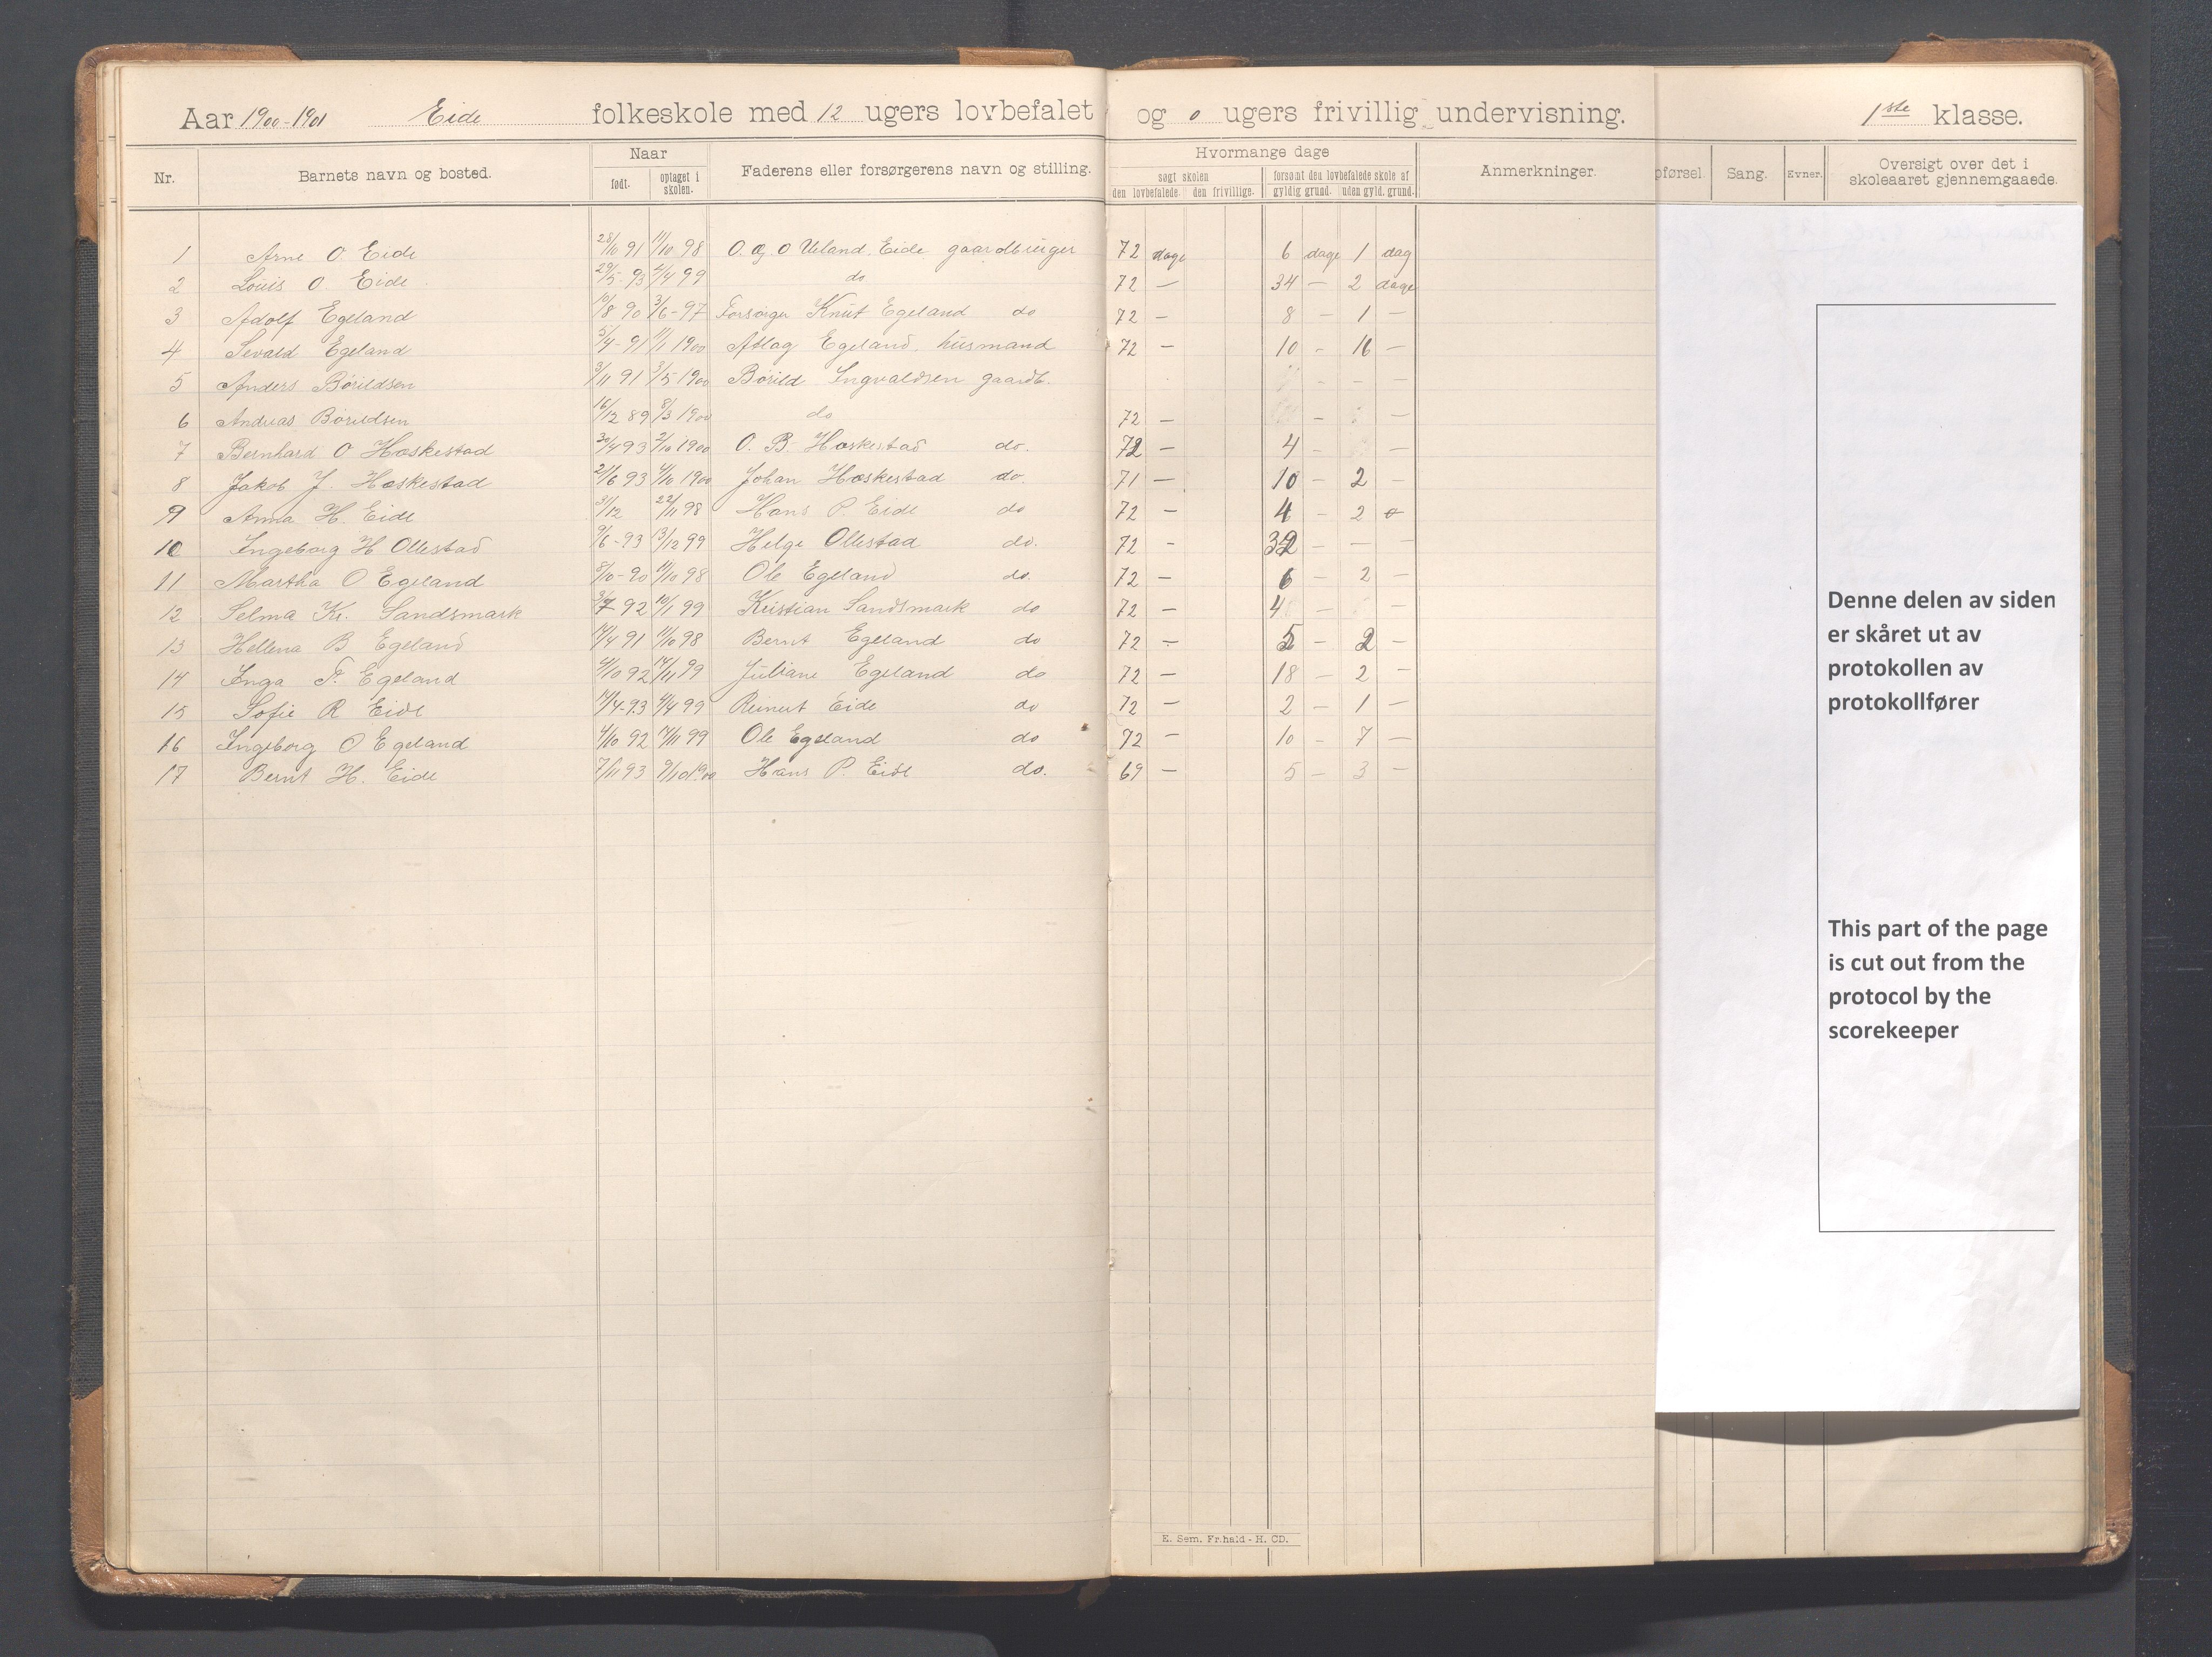 Aar 1900-1901 Eide folkeskole med 12 ugers lovbefalet og 0 ugers frivillig undervisning. 1ste klasse.
Nr. Barnets navn og bosted. Naar født. optaget i skolen. Faderens eller forsørgerens navn og stilling. Hvormange dage søgt skolen den lovbefalede. den frivillige. forsømt den lovbefalede skole af gyldig grund. uden gyld. grund. Anmerkninger. pførsel. Sang. Evner. Oversigt over det i skoleaaret gjennemgaaede.
1 Arne O Eide 28/10 91 11/10 98 O. og O Ueland, Eide gaardbruger 72 dage 6 dage 1 dag
2 Louis O. Eide 29/5-93 4/4 99 do 72 — 34 — 2 dage
3 Adolf Egeland 10/8 90 3/6-97 Forsørger Knut Egeland do 72 — 8 — 1 —
4 Sevald Egeland 5/4-91 11/1 1900 Aslag Egeland, husmand 72 — 10 - 16 —
5 Anders Børildsen 3/11 91 3/5 1900 Børild Ingvaldsen gaardb. - — —
6 Andreas Børildsen 16/12 89 8/3 1900 do 72 — — —
7 Bernhard O Hæskestad 30/4 93 2/10 1900 O. B. Hæskestad do. 72 — 4 - —
8 Jakob J. Hæskestad 21/6 93 4/10 1900 Johan Hæskestad do. 71 — 10 — 2 —
9 Anna H. Eide 31/12 22/11 98 Hans P. Eide do 72 — 4 — 2
10 Ingeborg H Ollestad 9/6-93 13/12 99 Helge Ollestad do. 72 - 32 — — —
11 Martha O Egeland 8/10-90 11/10 98 Ole Egeland do. 72 — 6 — 2 —
12 Selma Kr. Sandsmark 92 10/1 99 Kristian Sandsmark do 72 — 4 — —
13 Hellena B Egeland 14/4 91 11/10 98 Bernt Egeland do 72 — — 2 —
14 Inga T. Egeland 9/10 92 17/11 99 Juliane Egeland do 72 — 18 — 2 —
15 Sofie R Eide 14/4-93 4/4 99 Reinert Eide do 72 — 2 — 1 —
16 Ingeborg O Egeland 4/10 92 17/11 99 Ole Egeland do 72 — 10 — 7 —
17 Bernt H. Eide 7/11 93 9/10 1900 Hans P. Eide do. 69 — 5 — 3 —
Denne delen av siden
er skåret ut av
protokollen av
protokollfører
This part of the page
is cut out from the
protocol by the
scorekeeper
E. Sem, Fr.hald - H. CD.